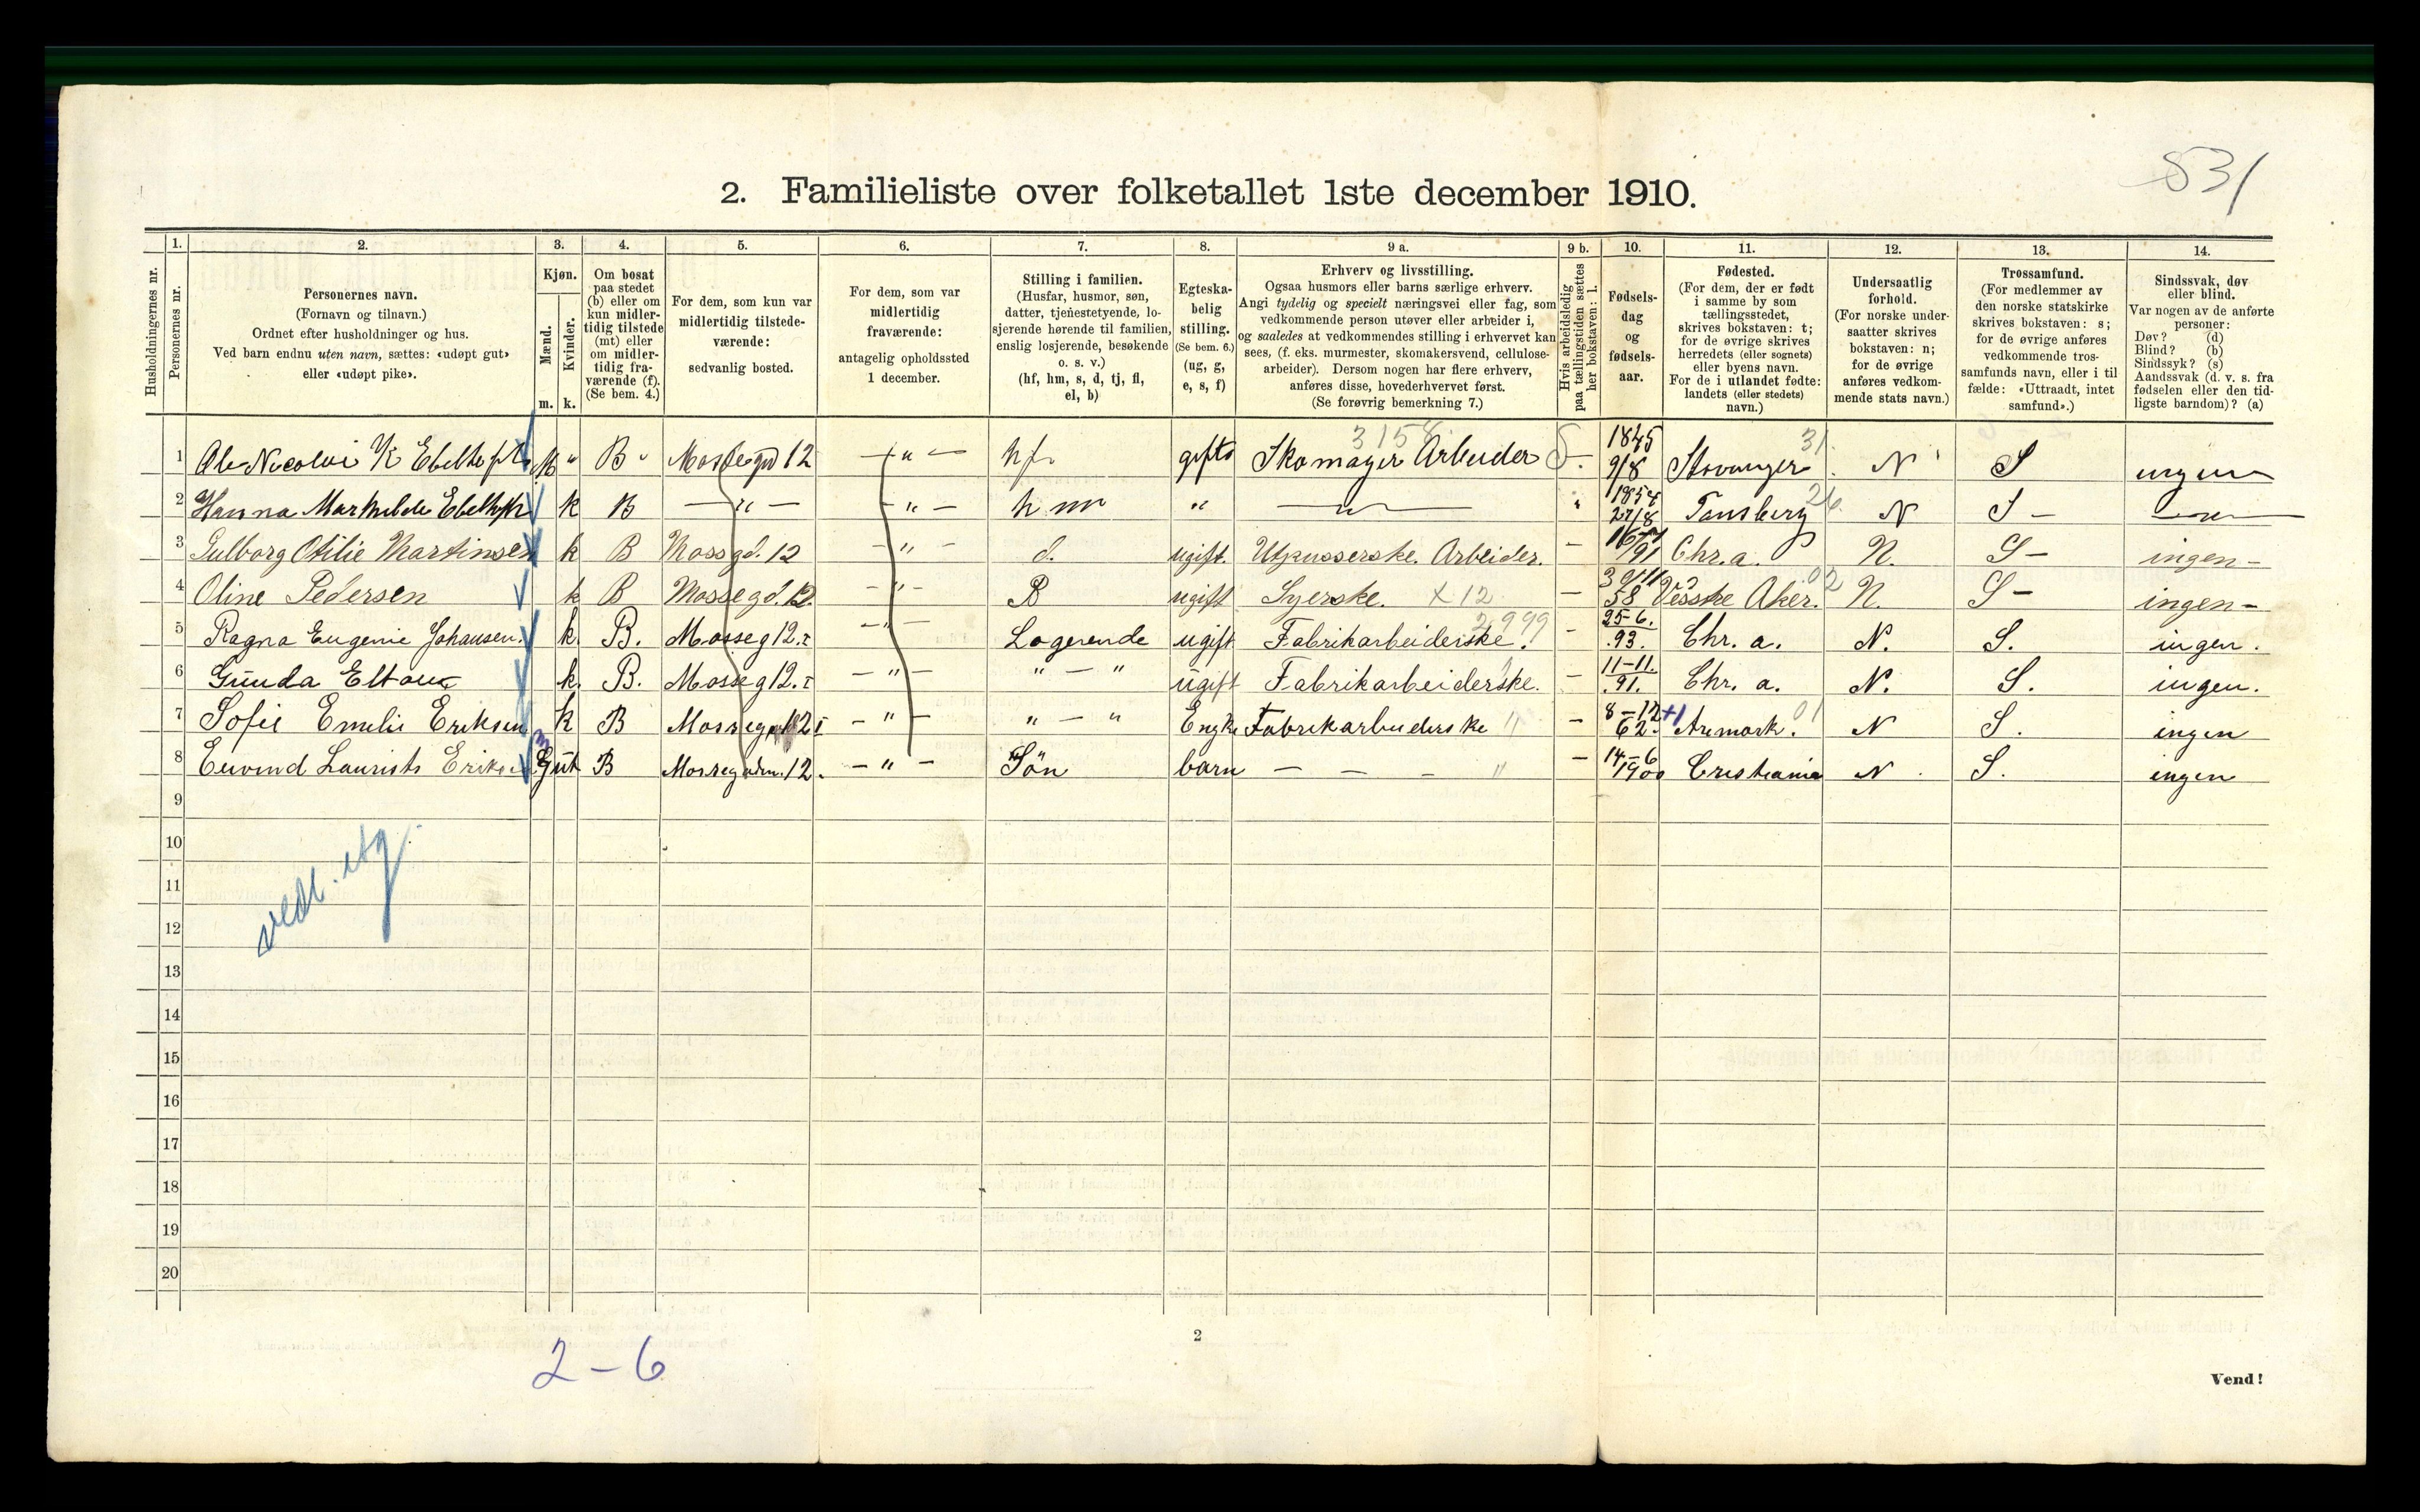 531
2. Familieliste over folketallet 1ste december 1910.
Husholdningernes nr.
1. Personernes nr.
2. Personernes navn.
(Fornavn og tilnavn.)
Ordnet efter husholdninger og hus.
Ved barn endnu uten navn, sættes: «udøpt gut»
eller «udøpt pike».
3. Kjøn.
Mænd. m.
Kvinder. k.
4. Om bosat
paa stedet
(b) eller om
kun midler-
tidig tilstede
(mt) eller
om midler-
tidig fra-
værende (f).
(Se bem. 4.)
5. For dem, som kun var
midlertidig tilstede-
værende:
sedvanlig bosted.
6. For dem, som var
midlertidig
fraværende:
antagelig opholdssted
1 december.
7. Stilling i familien.
(Husfar, husmor, søn,
datter, tjenestetyende, lo-
sjerende hørende til familien,
enslig losjerende, besøkende
o. s. v.)
(hf, hm, s, d, tj, fl,
el, b)
8. Egteska-
belig
stilling.
(Se bem. 6.)
(ug, g,
e, s, f)
9 a. Erhverv og livsstilling.
Ogsaa husmors eller barns særlige erhverv.
Angi tydelig og specielt næringsvei eller fag, som
vedkommende person utøver eller arbeider i,
og saaledes at vedkommendes stilling i erhvervet kan
sees, (f. eks. murmester, skomakersvend, cellulose-
arbeider). Dersom nogen har flere erhverv,
anføres disse, hovederhvervet først.
(Se forøvrig bemerkning 7.)
9 b. Hvis arbeidsledig
paa tællingstiden sættes
her bokstaven: l.
10. Fødsels-
dag
og
fødsels-
aar.
11. Fødested.
(For dem, der er født
i samme by som
tællingsstedet,
skrives bokstaven: t;
for de øvrige skrives
herredets (eller sognets)
eller byens navn.
For de i utlandet fødte:
landets (eller stedets)
navn.)
12. Undersaatlig
forhold.
(For norske under-
saatter skrives
bokstaven: n;
for de øvrige
anføres vedkom-
mende stats navn.)
13. Trossamfund.
(For medlemmer av
den norske statskirke
skrives bokstaven: s;
for de øvrige anføres
vedkommende tros-
samfunds navn, eller i til
fælde: «Uttraadt, intet
samfund».)
14. Sindssvak, døv
eller blind.
Var nogen av de anførte
personer:
Døv? (d)
Blind? (b)
Sindssyk? (s)
Aandssvak (d. v. s. fra
fødselen eller den tid-
ligste barndom)? (a)
3158 31
1 Ole Nicolai K M " B " 12 — " — hf. gifte Skomager Arbeider 1845 9/8 Stavanger N S ingen
2 Hanna k B — " — — " — hm " — " — 1854 27/8 Tønsberg 26 N S — — " —
3 Otilie Martinsen k B Mossgd. 12 — " — d. ugift. Arbeider. — /91 Chr.a. N. S — ingen —
4 Oline Pedersen k B Mossegd. 12. — " — B ugift Syerske. X 12 — 58 Aker. 02 N. S — ingen —
5 Ragna Eugenie Johansen. k. B. Mosseg 12. — " — Logerende ugift Fabrikarbeiderske. 2999 — 25-6. .93. Chr. a. N. S. ingen.
6 Gunda k. B. Mosseg 12. — " — " — " ugift Fabrikarbeiderske. — 11-11. .91. Chr. a. N. S. ingen.
7 Sofie Emelie Eriksen k B 12 — " — " — " Enke Fabrikarbeiderske " — 8-12 62. +1 Aremark. 01 N S. ingen
8 Eivind Laurits Eriksen m Gut B 12. — " — Søn barn — — — " — 14-6 1900 Cristiania N. S. ingen
9
10
11
12
13
14
15
16
17
18
19
20
vedl. etg.
2-6
2
Vend!